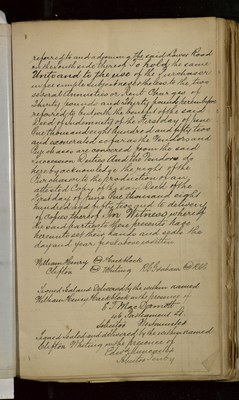 referred to and adjoining the said Lower Road
on the South side thereof To hold the same
Unto and to the use of the Purchaser
in fee simple subject nevertheless to the two
several Annuities or Rent Charges of
Thirty pounds and Thirty pounds hereinbefore
referred to but with the benefit of the said
Deed of Indemnity of the First day of June
One thousand eight hundred and fifty two
and
are
Succession Duties And the Vendors do
hereby acknowledge the right of the
Purchaser to the production of an
attested Copy of the said Deed of the
First day of June One thousand eight
hundred and fifty two and to delivery
of copies thereof In Witness whereof
the said parties to these presents have
hereunto set their hands and seals the
day and year first above written
William Henry
Clifton Whiting
Signed Sealed and Delivered by the within named
William Henry in the presence of
Parliament St.
Solicitor Westminster
Signed Sealed and delivered by the within named
Clifton Whiting in the presence of